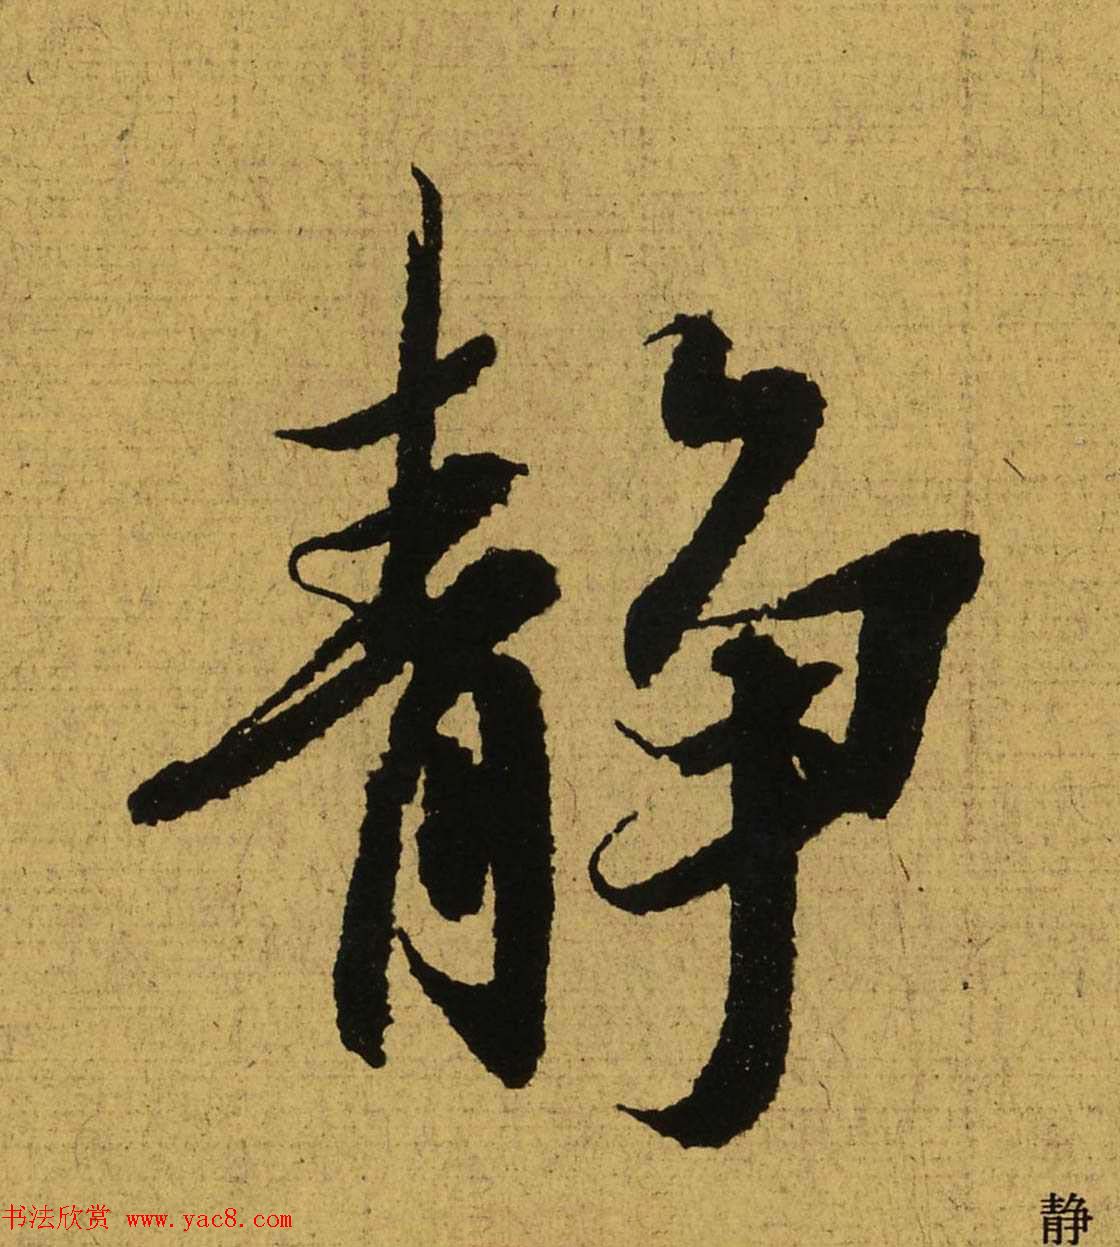 静
书法欣赏 www.yac8.com
静